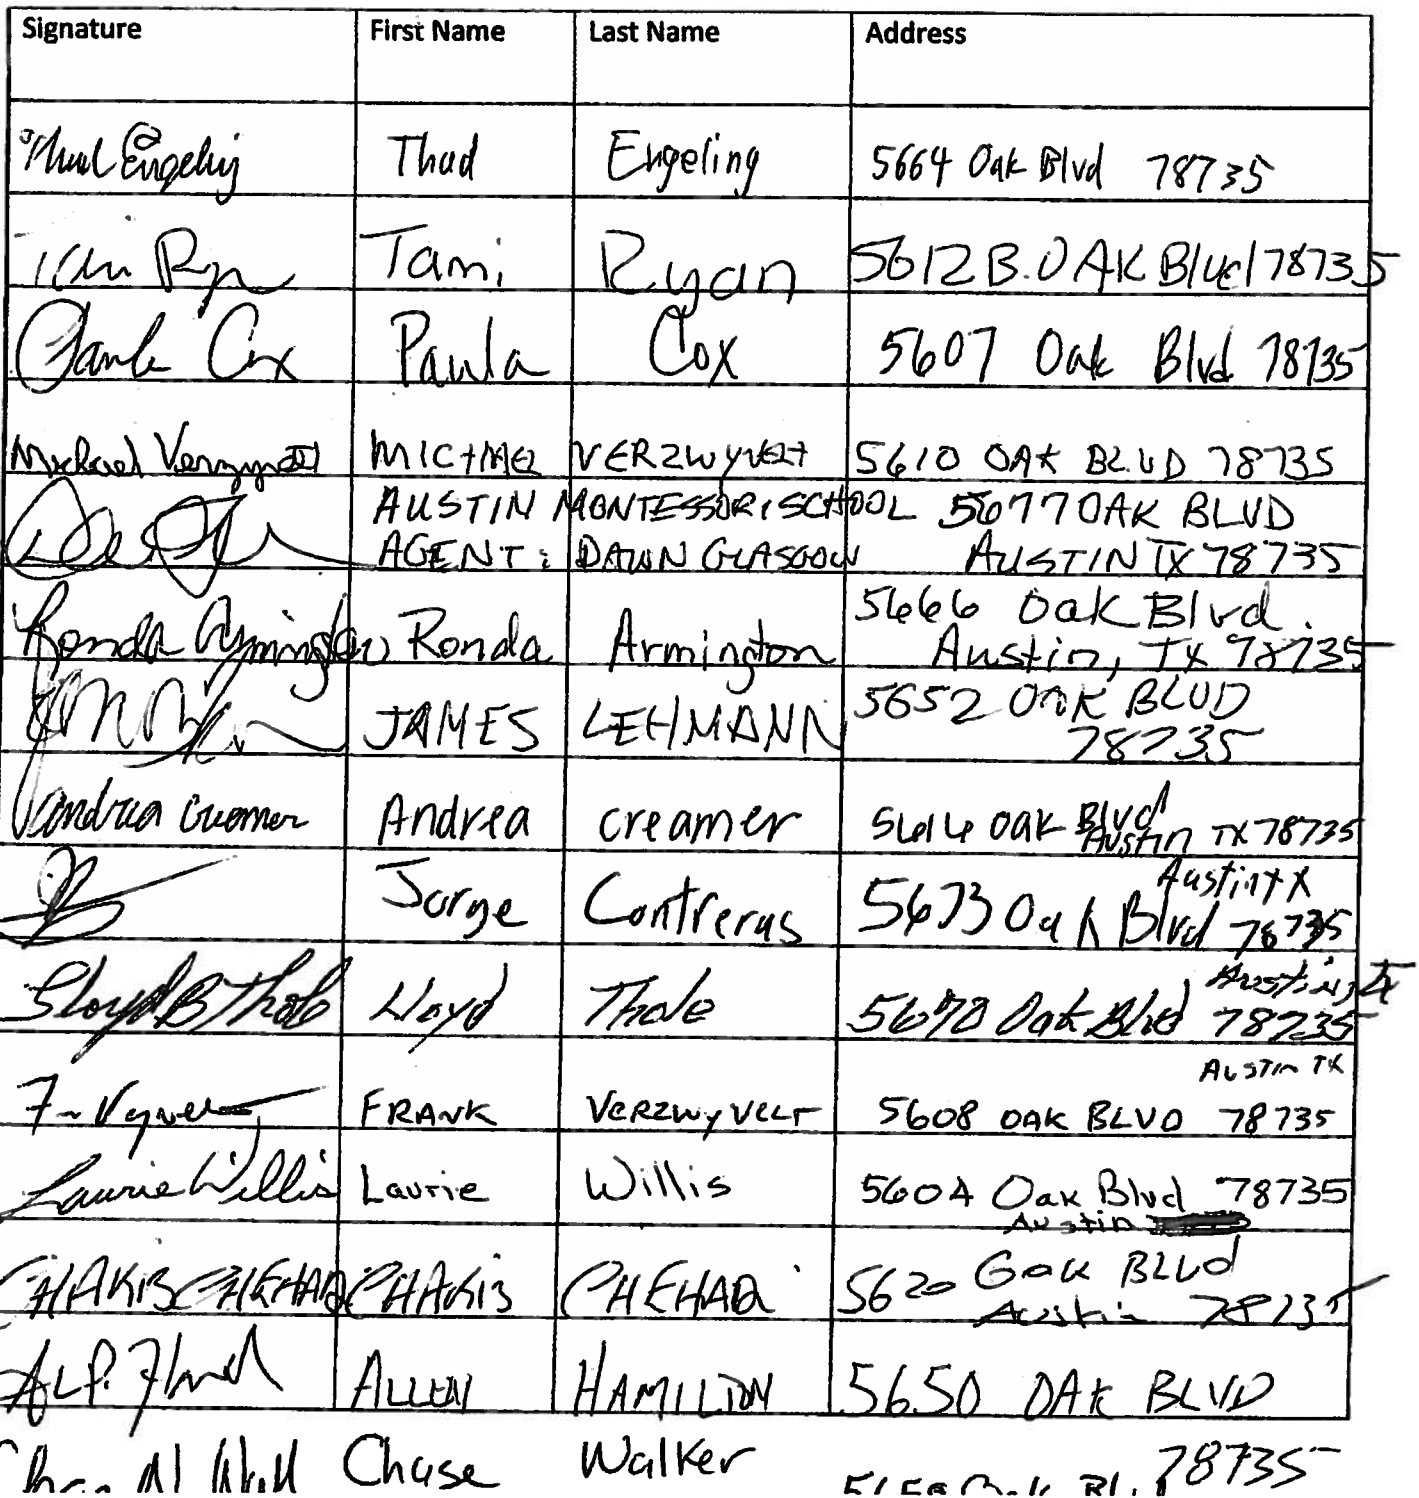 Signature First Name Last Name Address
Thad Engeling Thad Engeling 5664 Oak Blvd 78735
Tami Ryan Tami Ryan 5612 B. OAK Blvd 78735
Paula Cox Paula Cox 5607 Oak Blvd 78735
Michael Verzwyvelt MICHAEL VERZWYVELT 5610 OAK BLVD 78735
AUSTIN MONTESSORI SCHOOL 5677 OAK BLVD
AGENT: DAWN GLASGOW AUSTIN TX 78735
5666 Oak Blvd.
Ronda Armington Ronda Armington Austin, TX 78735
JAMES LEHMANN 5652 OAK BLVD
78735
Andrea Creamer Andrea creamer 5616 Oak Blvd
Austin TX 78735
Austin TX
Jorge Contreras 5673 Oak Blvd 78735
Austin,
Lloyd B Thole Lloyd Thole 5670 Oak Blvd 78735
AUSTIN TX
FRANK VERZWYVELT 5608 OAK BLVD 78735
Laurie Willis Laurie Willis 5604 A Oak Blvd 78735
Austin
CHAKIB CHEHADI CHAKIB CHEHADI 5620 Oak BLVD
Austin 78735
ALLEN HAMILTON 5650 OAK BLVD
78735
Chase Walker